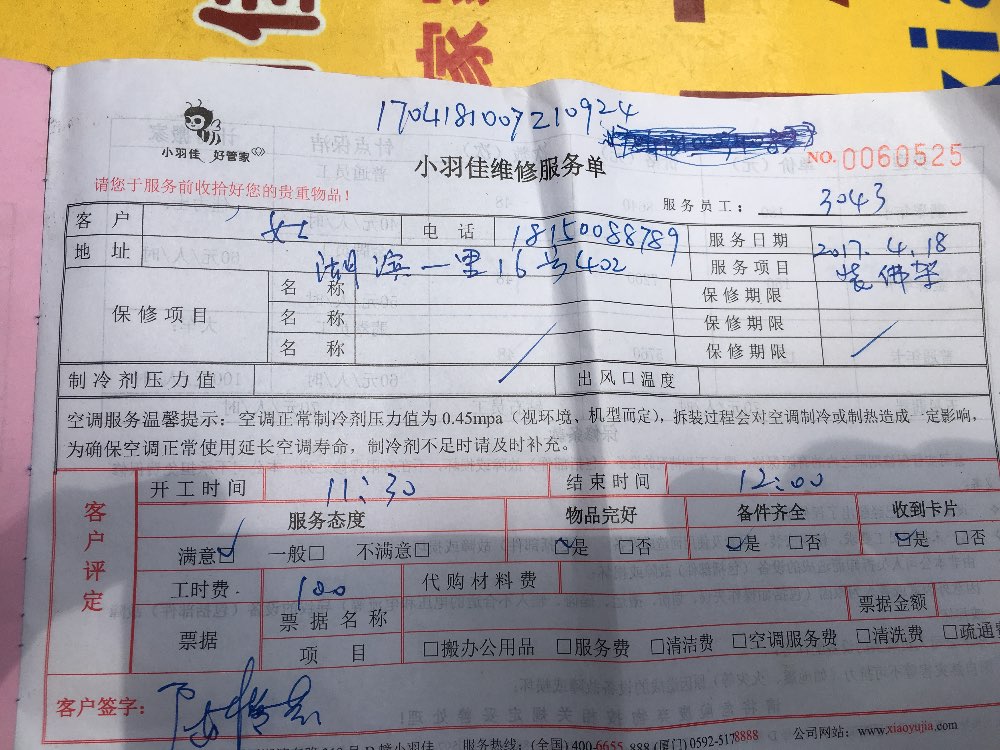 佳
家
ki
1704181007210924
小羽佳 好管家
小羽佳维修服务单
NO. 0060525
请您于服务前收拾好您的贵重物品！
服务员工： 3043
客户 女士 电话 18150088789 服务日期 2017.4.18
地址 湖滨一里16号402 服务项目 装佛架
保修项目 名称 保修期限
名称 保修期限
名称 保修期限
制冷剂压力值 出风口温度
空调服务温馨提示：空调正常制冷剂压力值为0.45mpa（视环境、机型而定），拆装过程会对空调制冷或制热造成一定影响，
为确保空调正常使用延长空调寿命，制冷剂不足时请及时补充。
客户评定
开工时间 11:30 结束时间 12:00
服务态度 物品完好 备件齐全 收到卡片
满意☑ 一般□ 不满意□ ☑是 □否 ☑是 □否 ☑是 □否
工时费 100 代购材料费
票据 票据名称 票据金额
项目 □搬办公用品 □服务费 □清洁费 □空调服务费 □清洗费 □疏通费
客户签字：
服务热线：(全国) 400-6655-888 (厦门) 0592-5178888 公司网站：www.xiaoyujia.com